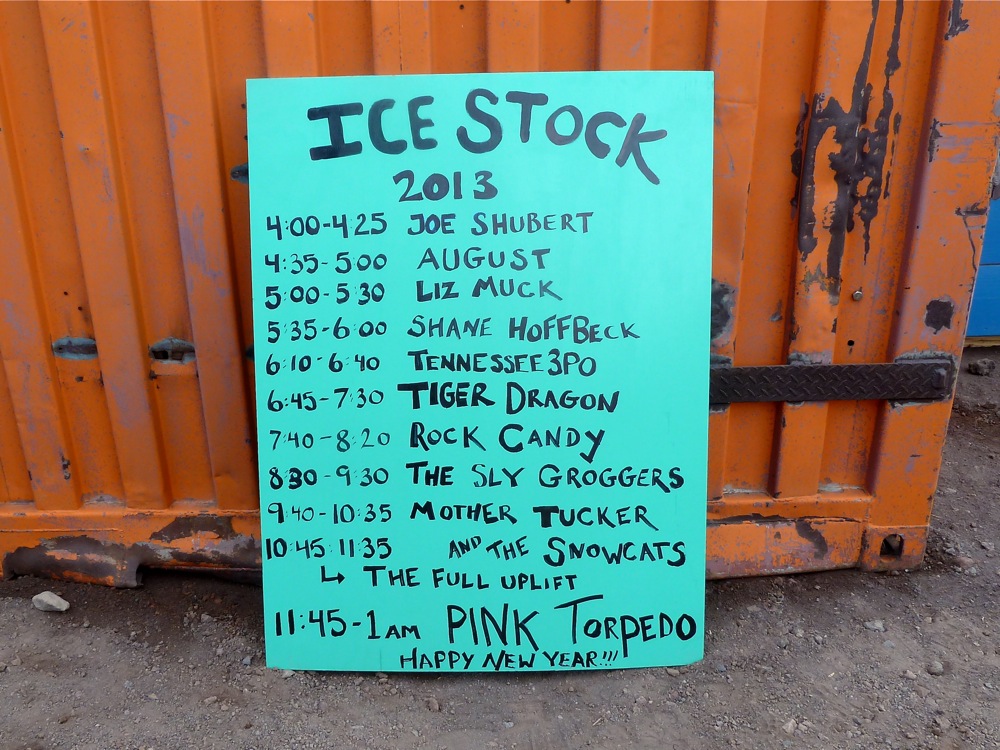 ICE STOCK
2013
4:00-4:25 JOE SHUBERT
4:35-5:00 AUGUST
5:00-5:30 LIZ MUCK
5:35-6:00 SHANE HOFFBECK
6:10-6:40 TENNESSEE3PO
6:45-7:30 TIGER DRAGON
7:40-8:20 ROCK CANDY
8:30-9:30 THE SLY GROGGERS
9:40-10:35 MOTHER TUCKER
10:45-11:35 AND THE SNOWCATS
↳ THE FULL UPLIFT
11:45-1AM PINK TORPEDO
HAPPY NEW YEAR!!!